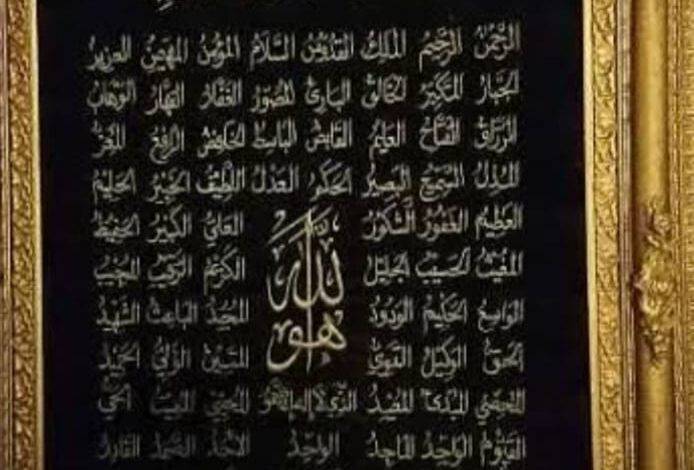 الرحمن الرحيم الملك القدوس السلام المؤمن المهيمن العزيز
الجبار المتكبر الخالق البارئ المصور الغفار القهار الوهاب
الرزاق الفتاح العليم القابض الباسط الخافض الرافع المعز
المذل السميع البصير الحكم العدل اللطيف الخبير الحليم
العظيم الغفور الشكور العلي الكبير الحفيظ
الحسيب الجليل الكريم الرقيب المجيب
الواسع الحكيم الودود المجيد الباعث الشهيد
الحق الوكيل القوي المتين الولي الحميد
هو الله
المحصي المبدئ المعيد الذي لا إله إلا هو المحيي المميت الحي
القيوم الواجد الماجد الواحد الأحد الصمد القادر